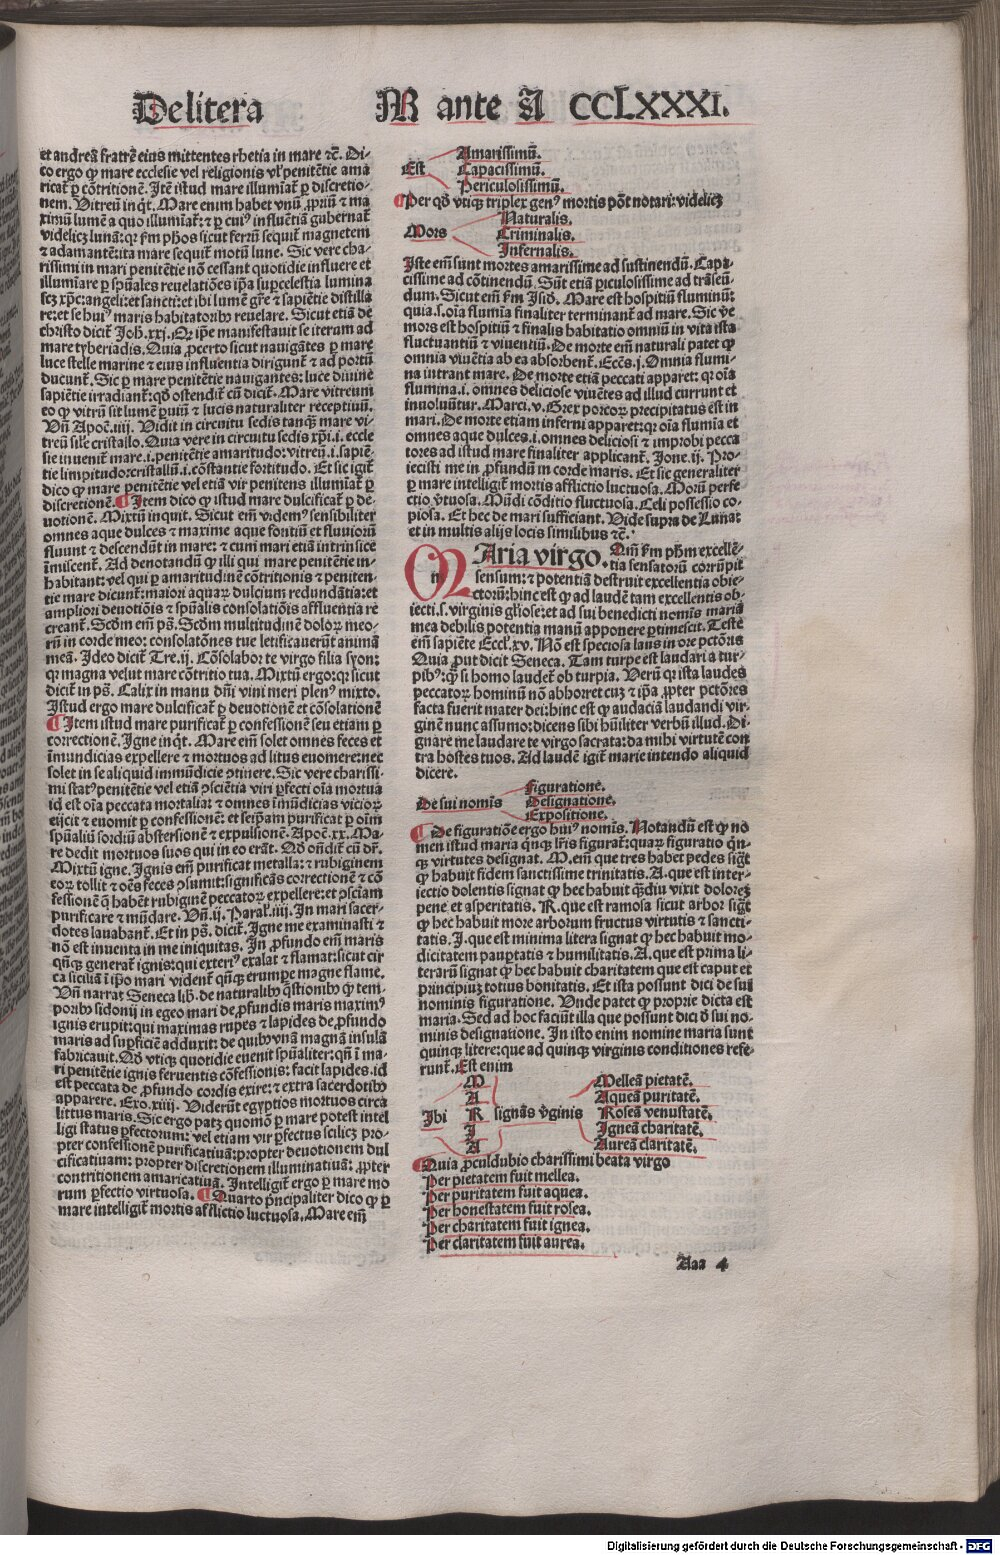 De litera M ante A CCLXXXI.
et andreã fratrẽ eius mittentes rhetia in mare ⁊c̃. Di-
co ergo ꝙ mare ecclesie vel religionis vl' penitẽtie ama
ricat̃ ꝑ cõtritionẽ. Itẽ istud mare illumĩat̃ ꝑ discretio-
nem. Vitreũ inq̃t. Mare enim habet vnũ ꝓriũ ⁊ ma
ximũ lumẽ a quo illumĩat̃: ⁊ ꝑ cuiꝰ influẽtiã gubernat̃
videlicꝫ lunã: qꝛ ẜm ph̃os sicut ferrũ sequit̃ magnetem
⁊ adamantẽ: ita mare sequit̃ motũ lune. Sic vere cha-
rissimi in mari penitẽtie nõ cessant quotidie influere et
illumĩare ꝑ spũales reuelatiões ip̃a suꝑcelestia lumina
scꝫ xp̃c: angeli: et sancti: et ibi lumẽ gr̃e ⁊ sapiẽtie distilla
re: et se huiꝰ maris habitatoribꝰ reuelare. Sicut etiã de
christo dicit̃ Joh̃. xxj. Qꝛ ip̃e manifestauit se iterum ad
mare tyberiadis. Quia ꝓcerto sicut nauigãtes ꝑ mare
luce stelle marine ⁊ eius influentia dirigunt̃ ⁊ ad portũ
ducunt̃. Sic ꝑ mare penitẽtie nauigantes: luce diuine
sapiẽtie irradiant̃: qd̃ ostendit̃ cũ dicit̃. Mare vitreum
eo ꝙ vitrũ sit lumẽ ꝑuiũ ⁊ lucis naturaliter receptiuũ.
Vñ Apoc̃. iiij. Vidit in circuitu sedis tanqꝫ mare vi-
treũ sil'e cristallo. Quia vere in circuitu sedis xp̃i .i. eccle
sie inuenit̃ mare .i. penitẽtie amaritudo: vitreũ .i. sapiẽ-
tie limpitudo: cristallũ .i. cõstantie fortitudo. Et sic igit̃
dico ꝙ mare penitẽtie vel etiã vir penitens illumĩat̃ ꝑ
discretionẽ. ¶ Item dico ꝙ istud mare dulcificat̃ ꝑ de-
uotionẽ. Mixtũ inquit. Sicut em̃ videmꝰ sensibiliter
omnes aque dulces ⁊ maxime aque fontiũ et fluuiorũ
fluunt ⁊ descendũt in mare: ⁊ cum mari etiã intrinsice
ĩmiscent̃. Ad denotandũ ꝙ illi qui mare penitẽtie in-
habitant: vel qui ꝑ amaritudinẽ cõtritionis ⁊ peniten-
tie mare dicunt̃: maiori aquaꝝ dulcium redundãtia: et
ampliori deuotiõis ⁊ spũalis consolatiõis affluentia re
creant̃. Scd̃m em̃ ps̃. Scd̃m multitudinẽ dolorꝝ meo-
rũ in corde meo: consolatões tue letificauerũt animã
meã. Ideo dicit̃ Tre. ij. Cõsolabor te virgo filia syon:
qꝛ magna velut mare cõtritio tua. Mixtũ ergo: qꝛ sicut
dicit̃ in ps̃. Calix in manu dñi vini meri plenꝰ mixto.
Istud ergo mare dulcificat̃ ꝑ deuotionẽ et cõsolationẽ
¶ Item istud mare purificat̃ ꝑ confessionẽ seu etiam ꝑ
correctionẽ. Igne inq̃t. Mare em̃ solet omnes feces et
ĩmundicias expellere ⁊ mortuos ad litus euomere: nec
solet in se aliquid immũdicie ꝯtinere. Sic vere charissi-
mi statꝰ penitẽtie vel etiã ꝯsciẽtia viri ꝑfecti oĩa mortua
id est oĩa peccata mortalia: ⁊ omnes ĩmũdicias vicioꝝ
eijcit ⁊ euomit ꝑ confessionẽ: et seip̃am purificat ꝑ oĩm
spũaliũ sordiũ abstersionẽ ⁊ expulsionẽ. Apoc̃. xx. Ma-
re dedit mortuos suos qui in eo erãt. Qd̃ oñdit̃ cũ dr̃.
Mixtũ igne. Ignis em̃ purificat metalla: ⁊ rubiginem
eoꝝ tollit ⁊ oẽs feces ꝯsumit: significãs correctionẽ ⁊ cõ
fessionẽ q̃ habẽt rubiginẽ peccatoꝝ expellere: et ꝯsciam
purificare ⁊ mũdare. Vñ. ij. Paral̃. iiij. In mari sacer-
dotes lauabant̃. Et in ps̃. dicit̃. Igne me examinasti ⁊
nõ est inuenta in me iniquitas. In ꝓfundo em̃ maris
qñqꝫ generat̃ ignis: qui exteriꝰ exalat ⁊ flamat: sicut cir
ca siciliã ĩ ip̃o mari vident̃ qñqꝫ erumpe magne flame.
Vñ narrat Seneca lib̃. de naturalibꝰ q̃stionibꝰ ꝙ tem-
poribꝰ sidonij in egeo mari de ꝓfundis maris maximꝰ
ignis erupit: qui maximas rupes ⁊ lapides de ꝓfundo
maris ad suꝑficiẽ adduxit: de quibꝰ vnã magnã insulã
fabricauit. Qd̃ vtiqꝫ quotidie euenit spũaliter: qñ ĩ ma-
ri penitẽtie ignis feruentis cõfessionis: facit lapides .id
est peccata de ꝓfundo cordis exire: ⁊ extra sacerdotibꝰ
apparere. Exo. xiiij. Viderũt egyptios mortuos circa
littus maris. Sic ergo patꝫ quomõ ꝑ mare potest intel
ligi status ꝑfectorum: vel etiam vir ꝑfectus scilicꝫ pro-
pter confessionẽ purificatiuã: propter deuotionem dul
cificatiuam: propter discretionem illuminatiuã: ꝓpter
contritionem amaricatiuã. Intelligit̃ ergo ꝑ mare mo
rum ꝑfectio virtuosa. ¶ Quarto p̃ncipaliter dico ꝙ ꝑ
mare intelligit̃ mortis afflictio luctuosa. Mare em̃
Est
Amarissimũ.
Capacissimũ.
Periculosissimũ.
¶ Per qd̃ vtiqꝫ triplex genꝰ mortis põt notari: videlicꝫ
Mors
Naturalis.
Criminalis.
Infernalis.
Iste em̃ sunt mortes amarissime ad sustinendũ. Capa-
cissime ad cõtinendũ. Sũt etiã ꝑiculosissime ad trãseũ-
dum. Sicut em̃ ẜm Isid̃. Mare est hospitiũ fluminũ:
quia .s. oĩa flumĩa finaliter terminant̃ ad mare. Sic ṽe
mors est hospitiũ ⁊ finalis habitatio omniũ in vita ista
fluctuantiũ ⁊ viuentiũ. De morte em̃ naturali patet ꝙ
omnia viuẽtia ab ea absorbent̃. Ecc̃s. j. Omnia flumi-
na intrant mare. De morte etiã peccati apparet: qꝛ oĩa
flumina .i. omnes deliciose viuẽtes ad illud currunt et
inuoluũtur. Marci. v. Grex porcoꝝ precipitatus est in
mari. De morte etiam inferni apparet: qꝛ oĩa flumĩa et
omnes aque dulces .i. omnes deliciosi ⁊ improbi pecca
tores ad istud mare finaliter applicant̃. Jone. ij. Pro-
iecisti me in ꝓfundũ m̃ corde maris. Et sic generaliter
ꝑ mare intelligit̃ mortis afflictio luctuosa. Morũ perfe
ctio ṽtuosa. Mũdi cõditio fluctuosa. Celi possessio co-
piosa. Et hec de mari sufficiant. Vide supra de Luna:
et in multis alijs locis similibus ⁊c̃.
MAria virgo. Qm̃ ẜm ph̃m excellẽ-
tia sensatorũ corrũpit
sensum: ⁊ potentiã destruit excellentia obie-
ctorũ: hinc est ꝙ ad laudẽ tam excellentis ob-
iecti .s. virginis gl̃iose: et ad sui benedicti nomĩs mariã
mea debilis potentia manũ apponere ꝑtimescit. Teste
em̃ sapiẽte Eccl̃. xv. Nõ est speciosa laus in ore pctõris
Quia ꝓut dicit Seneca. Tam turpe est laudari a tur-
pibꝰ: ꝙ̃ si homo laudet̃ ob turpia. Verũ qꝛ ista laudes
peccatoꝝ hominũ nõ abhorret cuꝫ ⁊ ip̃a ꝓpter pctõres
facta fuerit mater dei: hinc est ꝙ audaciã laudandi vir-
ginẽ nunc assumo: dicens sibi hũiliter verbũ illud. Di-
gnare me laudare te virgo sacrata: da mihi virtutẽ con
tra hostes tuos. Ad laudẽ igit̃ marie intendo aliquid
dicere.
De sui nomĩs
figuratione.
Designatione.
Expositione.
¶ De figuratiõe ergo huiꝰ nomĩs. Notandũ est ꝙ no
men istud maria qñqꝫ l̃ris figurat̃: quaꝝ figuratio qñ-
qꝫ virtutes designat. M. em̃ que tres habet pedes sigt̃
ꝙ habuit fidem sanctissime trinitatis. A. que est inter-
iectio dolentis signat ꝙ hec habuit qꝫdiu vixit doloreꝫ
pene et asperitatis. R. que est ramosa sicut arbor sigt̃
ꝙ hec habuit more arborum fructus virtutis ⁊ sancti-
tatis. I. que est minima litera signat ꝙ hec habuit mo-
dicitatem pauꝑtatis ⁊ humilitatis. A. que est prima li-
terarũ signat ꝙ hec habuit charitatem que est caput et
principiuꝫ totius bonitatis. Et ista possunt dici de sui
nominis figuratione. Vnde patet ꝙ proprie dicta est
maria. Sed ad hoc faciũt illa que possunt dici d̃ sui no-
minis designatione. In isto enim nomine maria sunt
quinqꝫ litere: que ad quinqꝫ virginis conditiones refe-
runt̃. Est enim
Ibi
M
A
R
I
A
signãs ṽginis
Melleã pietatẽ.
Aqueã puritatẽ.
Roseã venustatẽ.
Igneã charitatẽ.
Aureã claritatẽ.
¶ Quia ꝓculdubio charissimi beata virgo
Per pietatem fuit mellea.
Per puritatem fuit aquea.
Per honestatem fuit rosea.
Per charitatem fuit ignea.
Per claritatem fuit aurea.
Aaa 4
Digitalisierung gefördert durch die Deutsche Forschungsgemeinschaft - DFG